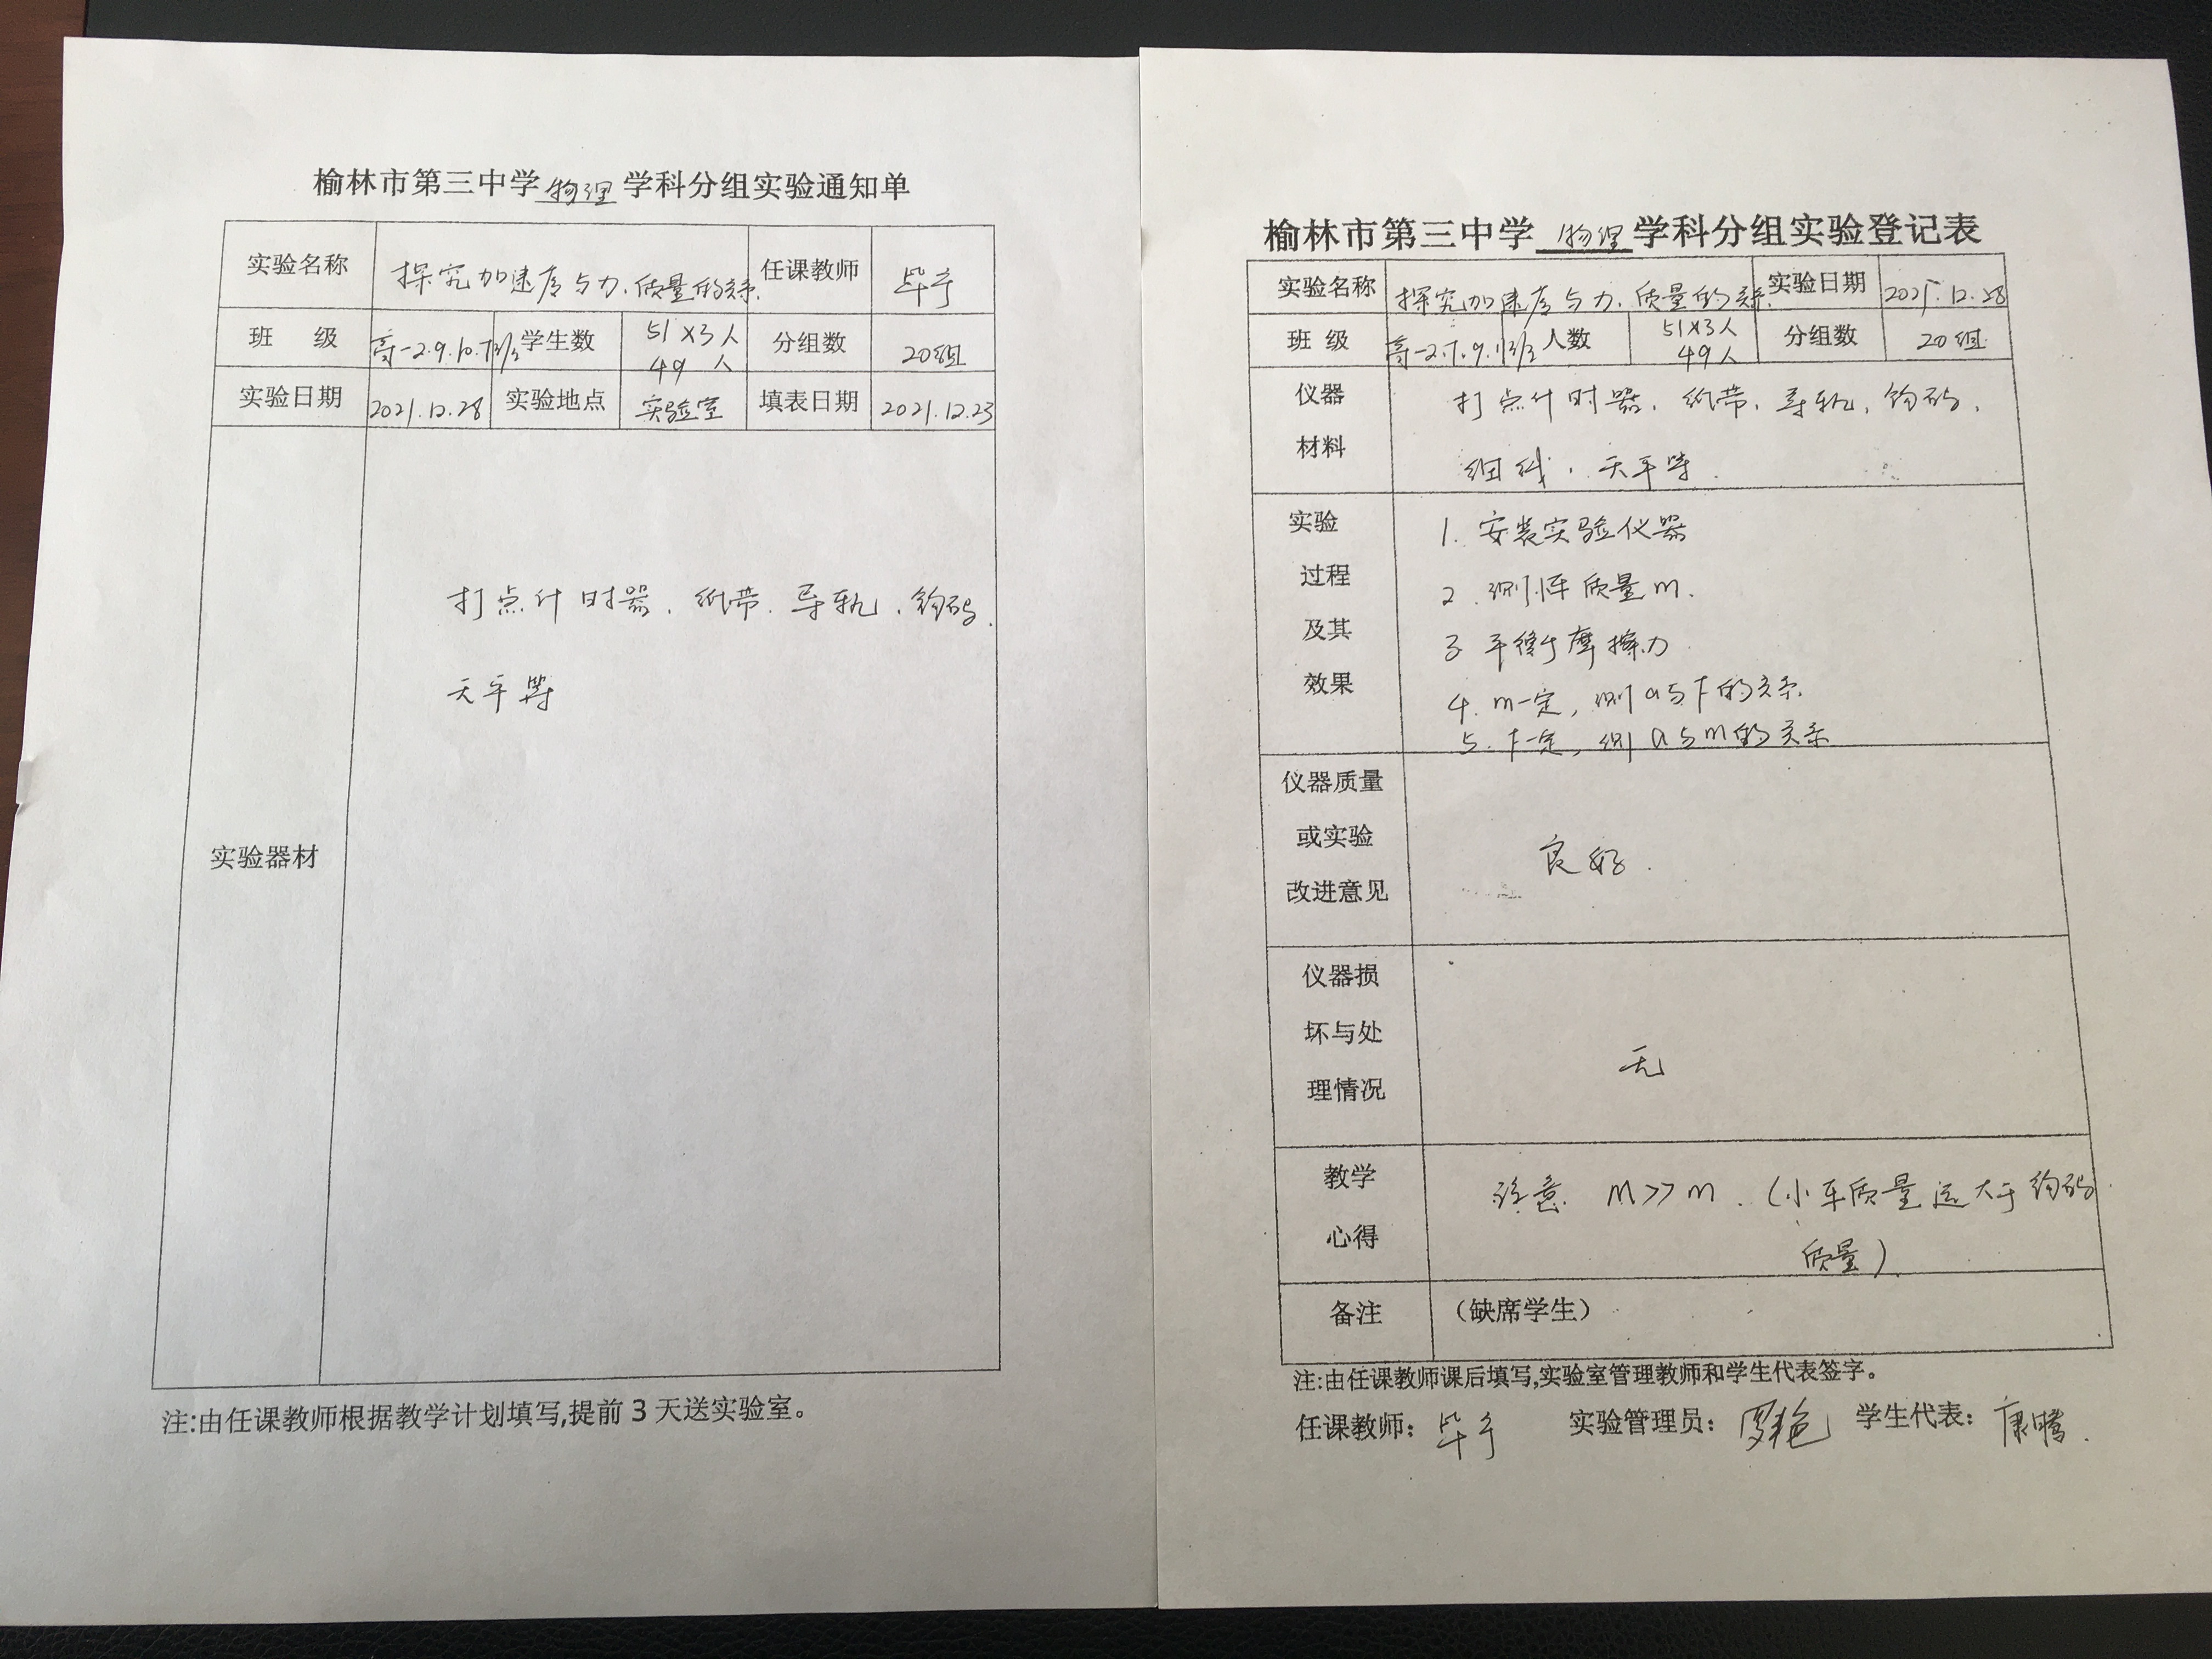 榆林市第三中学 物理 学科分组实验通知单
实验名称 探究加速度与力、质量的关系. 任课教师 毕于
班 级 高一2.9.10. 学生数 51×3人 49人 分组数 20组
实验日期 2021.12.28 实验地点 实验室 填表日期 2021.12.23
实验器材
打点计时器、纸带、导轨、钩码、
天平等
注:由任课教师根据教学计划填写,提前3天送实验室。
榆林市第三中学 物理 学科分组实验登记表
实验名称 探究加速度与力、质量的关系. 实验日期 2021.12.28
班 级 高一2. 人数 51×3人 49人 分组数 20组
仪器 打点计时器、纸带、导轨、钩码、
材料 细线、天平等.
实验 1. 安装实验仪器
过程 2. 测小车质量m.
及其 3 平衡摩擦力
效果 4. m一定,测a与F的关系.
5. F一定,测a与m的关系
仪器质量
或实验 良好.
改进意见
仪器损
坏与处 无
理情况
教学 注意 M>>m.(小车质量远大于钩码
心得 质量).
备注 (缺席学生)
注:由任课教师课后填写,实验室管理教师和学生代表签字。
任课教师: 毕于 实验管理员: 罗艳 学生代表: 康腾.